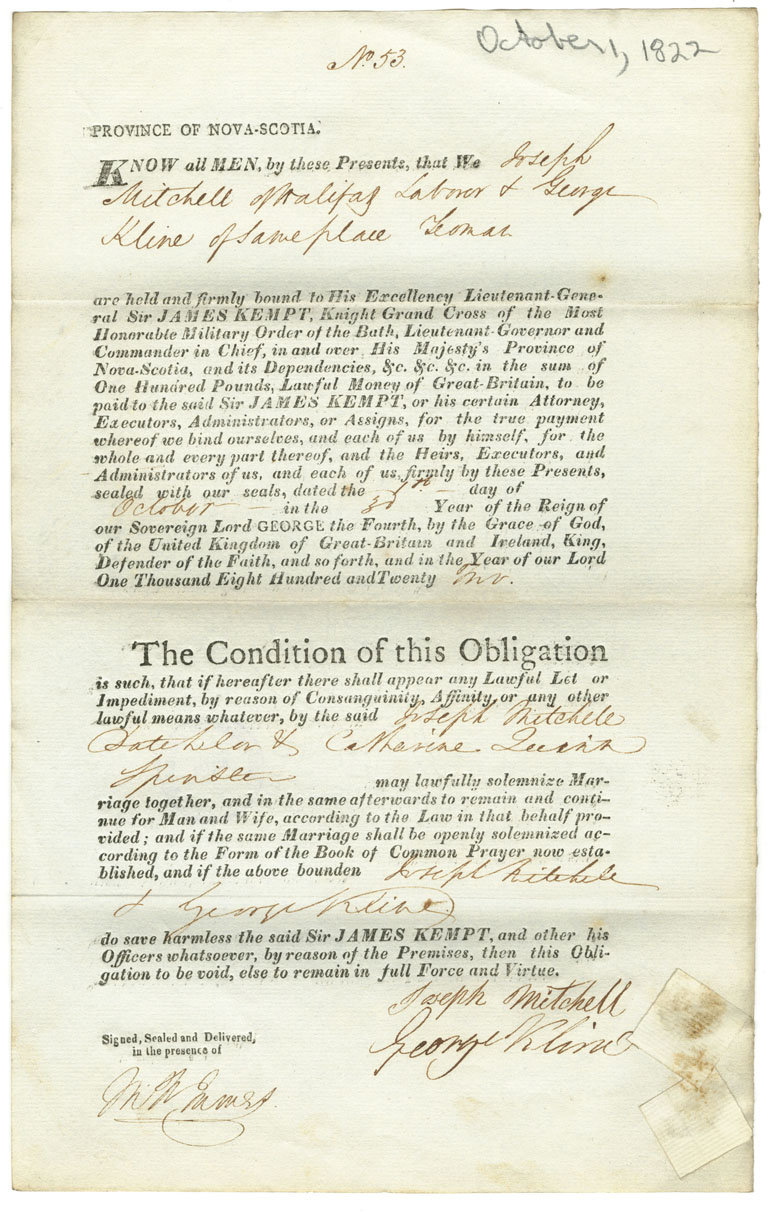 October 1, 1822
No. 53.
PROVINCE OF NOVA-SCOTIA.
KNOW all MEN, by these Presents, that We Joseph
Mitchell of Halifax Laborer & George
Kline of Same place Yeoman
are held and firmly bound to His Excellency Lieutenant-Gene-
ral Sir JAMES KEMPT, Knight Grand Cross of the Most
Honorable Military Order of the Bath, Lieutenant-Governor and
Commander in Chief, in and over His Majesty's Province of
Nova-Scotia, and its Dependencies, &c. &c. &c. in the sum of
One Hundred Pounds, Lawful Money of Great-Britain, to be
paid to the said Sir JAMES KEMPT, or his certain Attorney,
Executors, Administrators, or Assigns, for the true payment
whereof we bind ourselves, and each of us by himself, for the
whole and every part thereof, and the Heirs, Executors, and
Administrators of us, and each of us, firmly by these Presents,
sealed with our seals, dated the 1st day of
October in the 3d Year of the Reign of
our Sovereign Lord GEORGE the Fourth, by the Grace of God,
of the United Kingdom of Great-Britain and Ireland, King,
Defender of the Faith, and so forth, and in the Year of our Lord
One Thousand Eight Hundred and Twenty Two.
The Condition of this Obligation
is such, that if hereafter there shall appear any Lawful Let or
Impediment, by reason of Consanguinity, Affinity, or any other
lawful means whatever, by the said Joseph Mitchell
Batchelor & Catherine Quinn
Spinster may lawfully solemnize Mar-
riage together, and in the same afterwards to remain and conti-
nue for Man and Wife, according to the Law in that behalf pro-
vided; and if the same Marriage shall be openly solemnized ac-
cording to the Form of the Book of Common Prayer now esta-
blished, and if the above bounden Joseph Mitchell
& George Kline
do save harmless the said Sir JAMES KEMPT, and other his
Officers whatsoever, by reason of the Premises, then this Obli-
gation to be void, else to remain in full Force and Virtue.
Joseph Mitchell
George Kline
Signed, Sealed and Delivered,
in the presence of
James